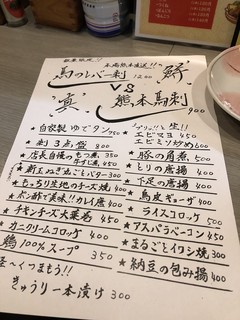 数量限定!!
本場熊本直送!!
馬のレバー刺 1200
VS
熊本馬刺 900
真
★自家製ゆでタン 450
★刺3点盛 800
★店長自慢のもつ煮 350
★新玉ねぎ丸ごとバター 300
★もっちり生地のチーズ焼 400
★ポン酢で美味!!カレイ唐 400
★チキンチーズ大葉巻 450
★カニクリームコロッケ 400
★鶏100%スープ 350
きゅうり一本漬け 300
プリッと生!!
エビマヨ 450
エビミソ炒め 600
★豚の角煮 500
★とりの唐揚 400
★下足の唐揚 400
★馬皮ギョーザ 400
★ライスコロッケ 500
★アスパラベーコン 450
★まるごとイワシ焼 300
★納豆の包み揚 400